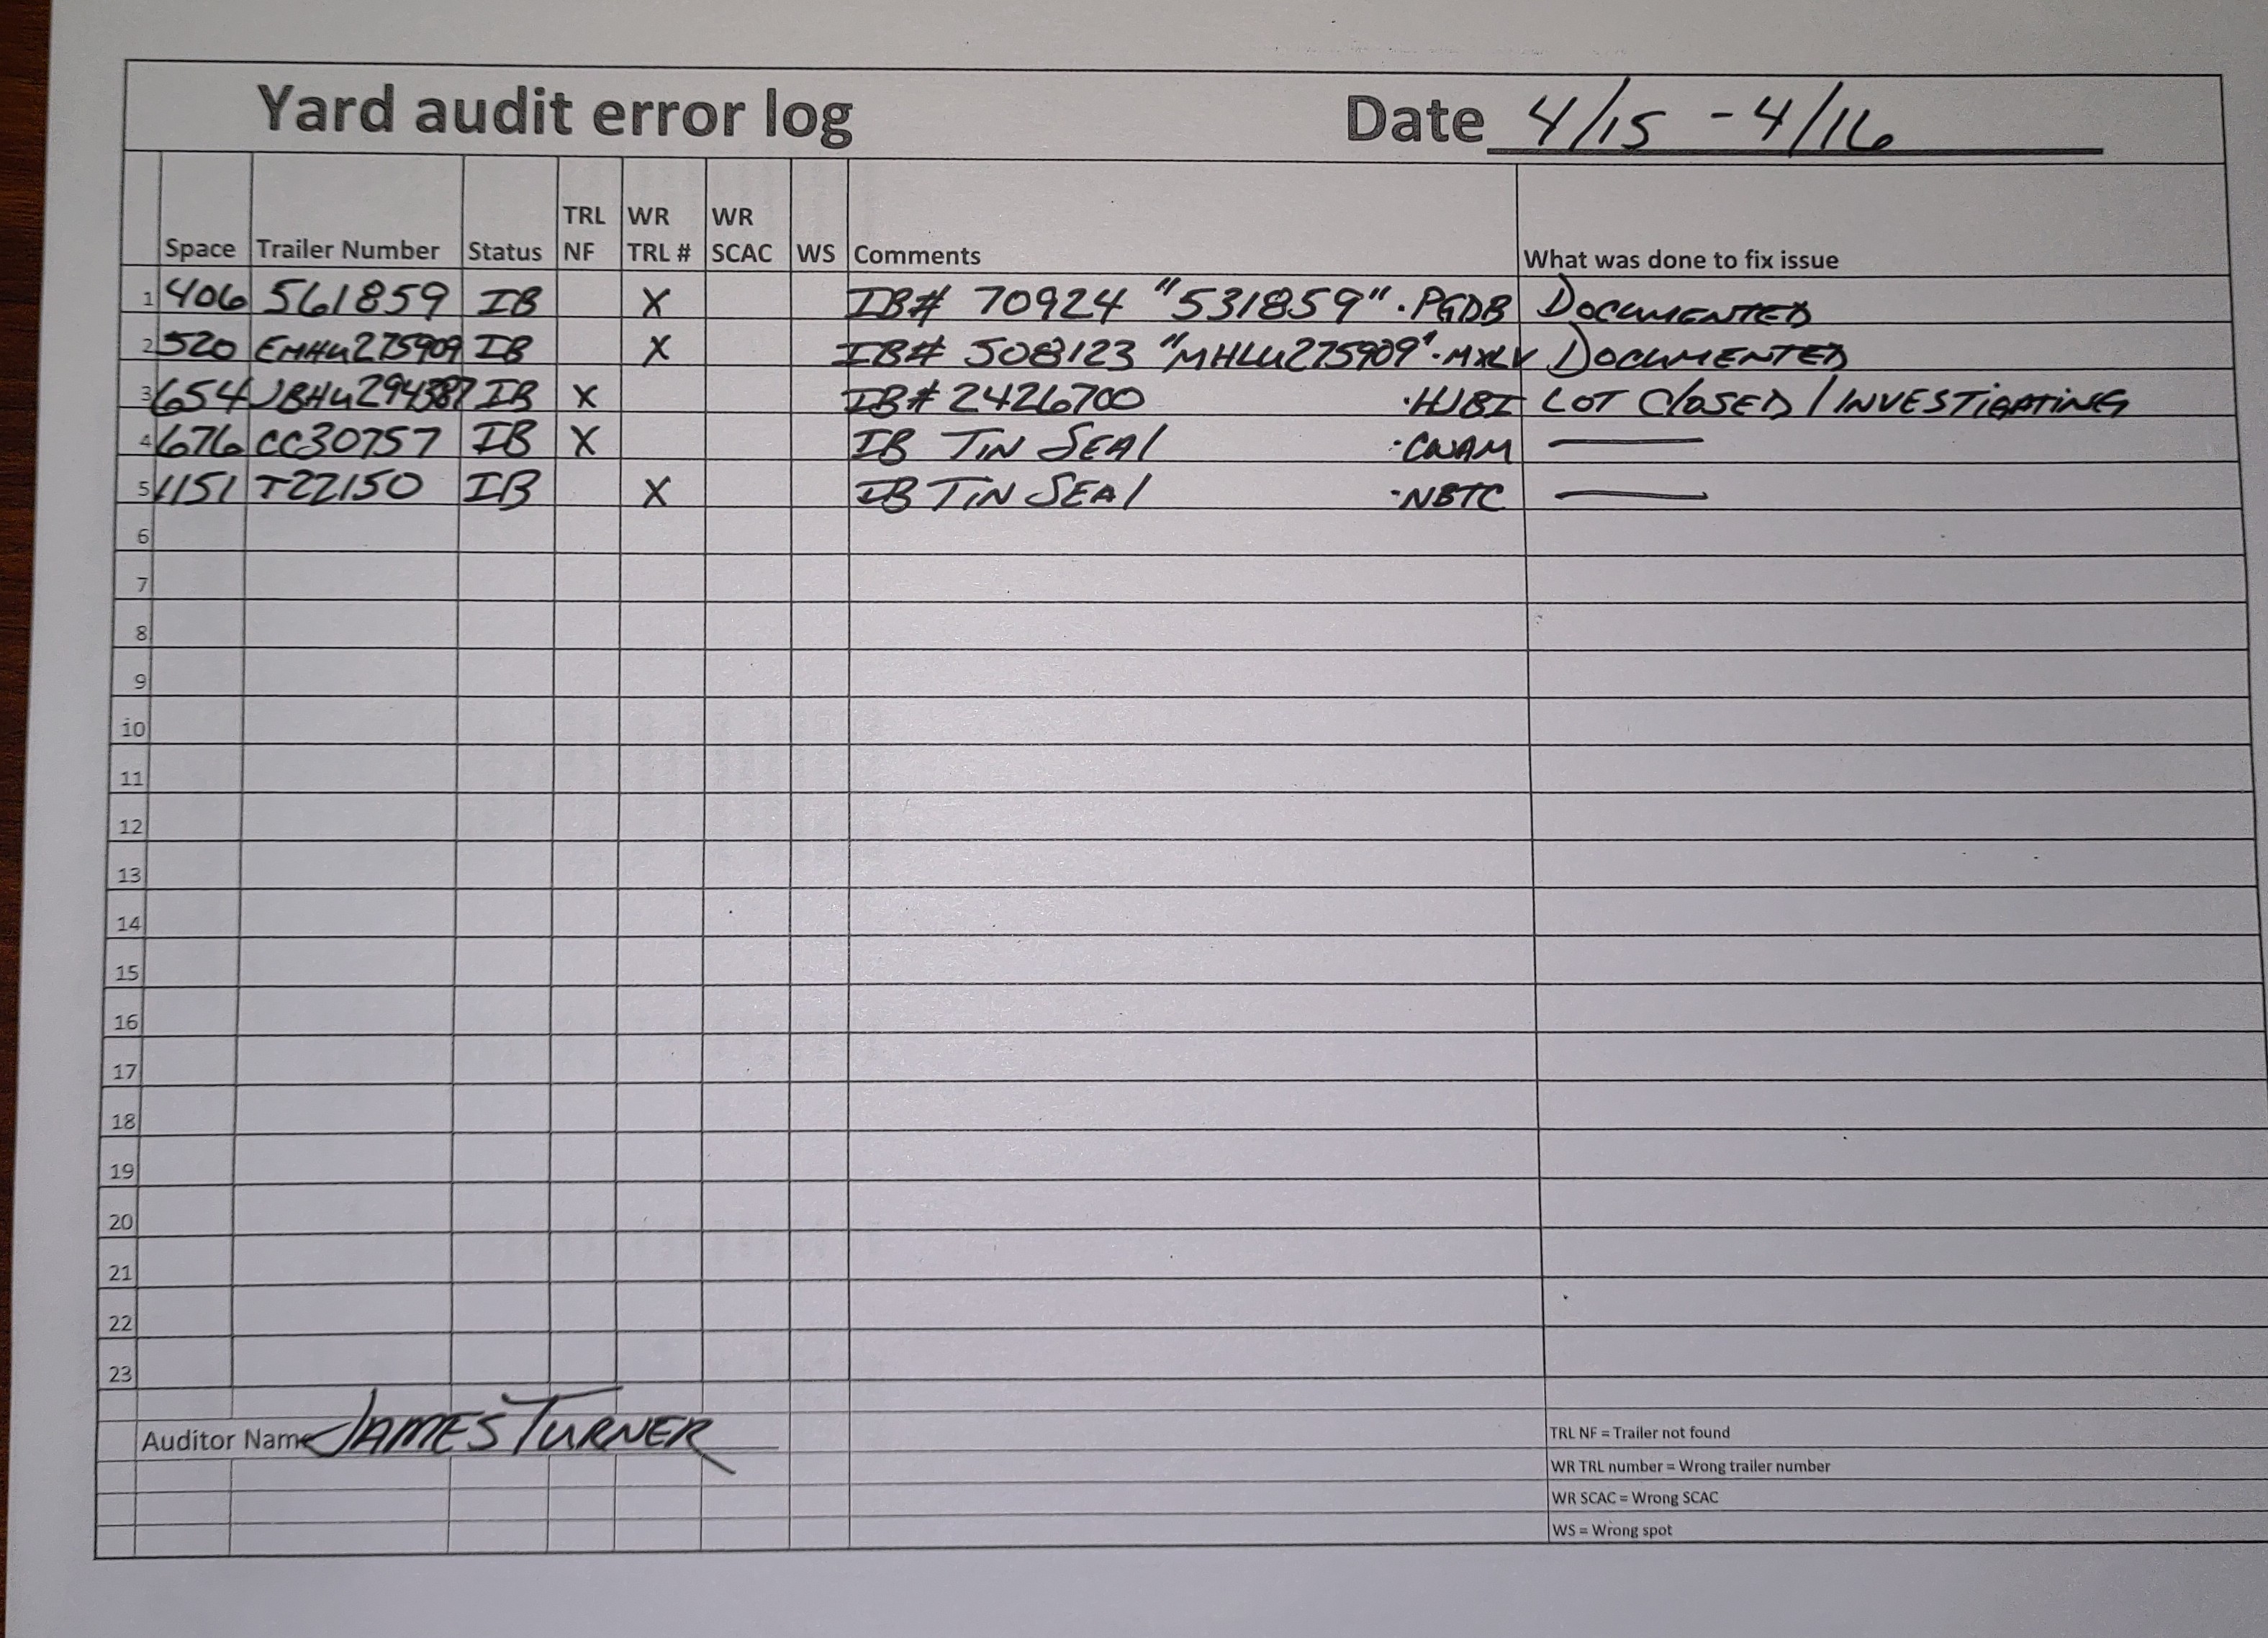 Yard audit error log Date 4/15 - 4/16
Space Trailer Number Status TRL NF WR TRL # WR SCAC WS Comments What was done to fix issue
1 406 561859 IB X IB# 70924 "531859" ·PGDB DOCUMENTED
2 520 EMHU275909 IB X IB# 508123 "MHLU275909" ·MXLV DOCUMENTED
3 654 JBHU294387 IB X IB# 2426700 ·HJBI LOT CLOSED / INVESTIGATING
4 676 CC30757 IB X IB TIN SEAL ·CWAM —
5 1151 T22150 IB X IB TIN SEAL ·NBTC —
6
7
8
9
10
11
12
13
14
15
16
17
18
19
20
21
22
23
Auditor Name JAMES TURNER
TRL NF = Trailer not found
WR TRL number = Wrong trailer number
WR SCAC = Wrong SCAC
WS = Wrong spot